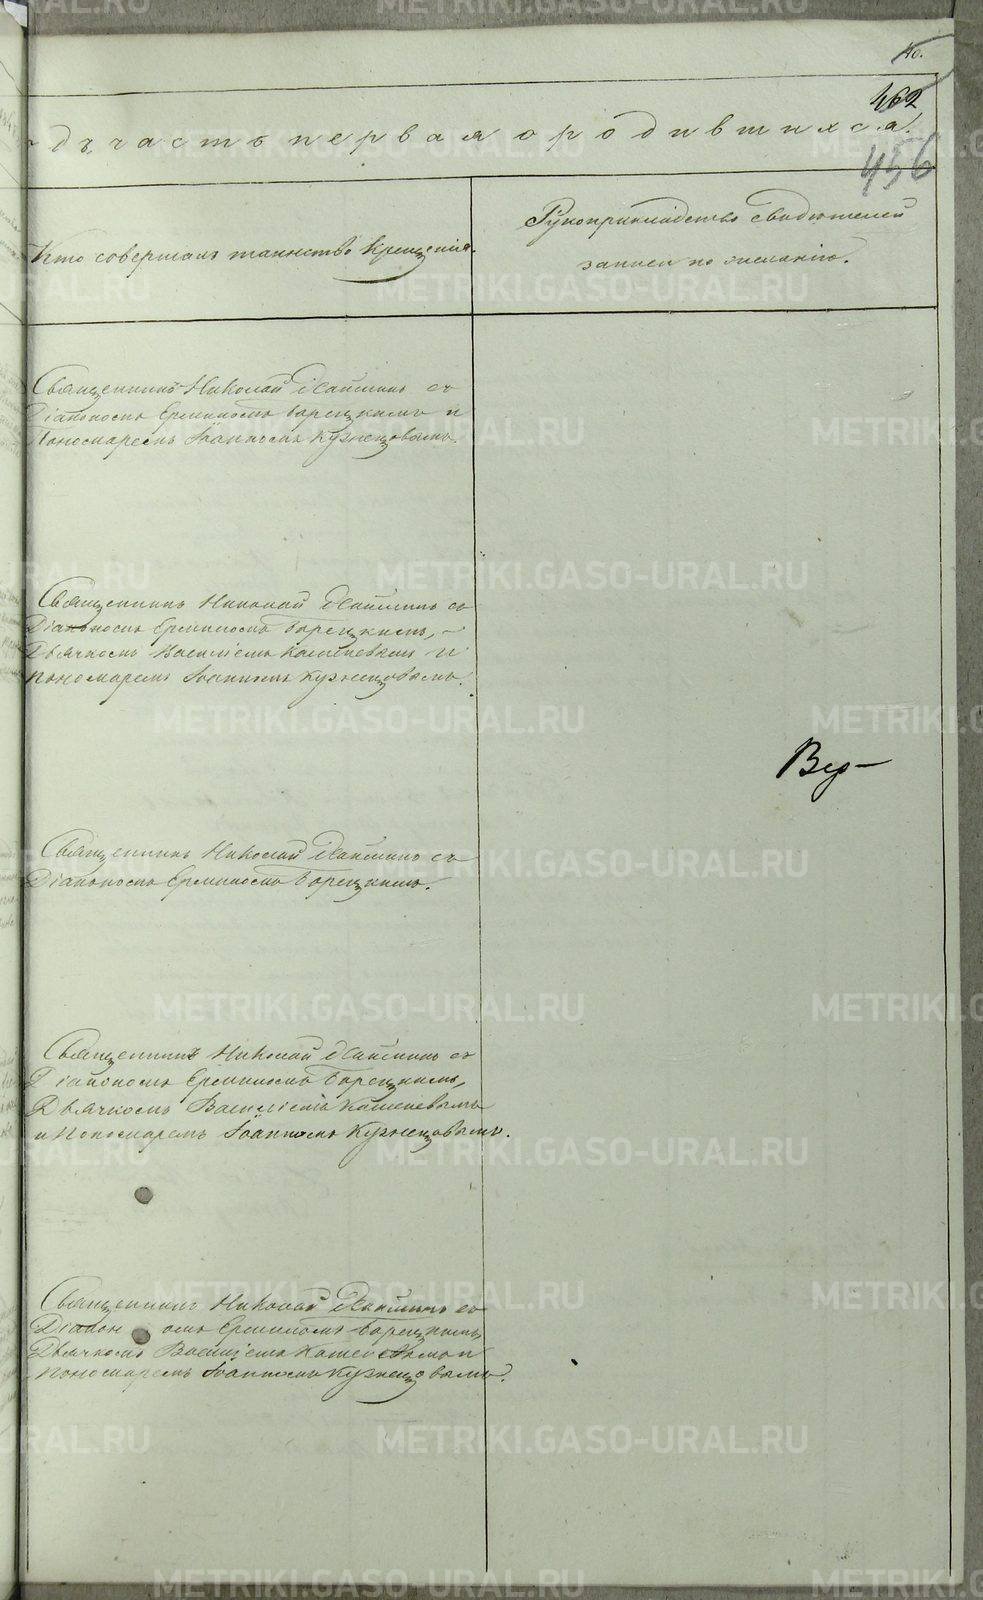 40.
462
456
дъ, часть первая о родившихся.
Кто совершалъ таинство крещенія.
Рукоприкладство свидѣтелей
записи по желанію.
Священникъ Николай съ
Діакономъ Ермиломъ Борецкимъ и
Пономаремъ Іоанномъ Кузнецовымъ.
Священникъ Николай съ
Діакономъ Ермиломъ Борецкимъ,
Дьячкомъ Василіемъ и
Пономаремъ Іоанномъ Кузнецовымъ.
Священникъ Николай съ
Діакономъ Ермиломъ Борецкимъ.
Священникъ Николай съ
Діакономъ Ермиломъ Борецкимъ,
Дьячкомъ Василіемъ
и Пономаремъ Іоанномъ Кузнецовымъ.
Священникъ Николай съ
Діакономъ Ермиломъ Борецкимъ
Дьячкомъ Василіемъ и
Пономаремъ Іоанномъ Кузнецовымъ.
METRIKI.GASO-URAL.RU